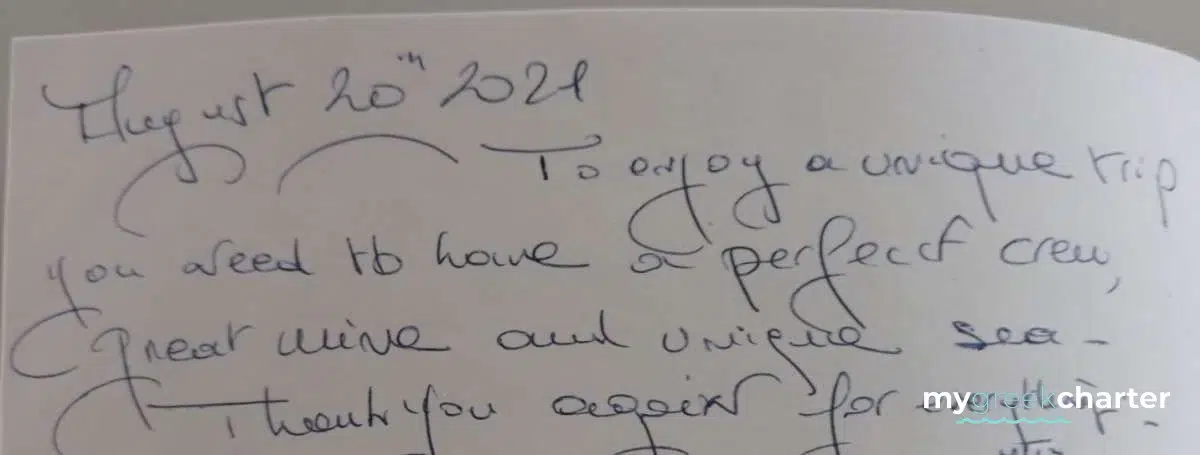 August 20th 2021
To enjoy a unique trip
you need to have a perfect crew,
great wine and unique sea -
Thank you again for
mygreekcharter